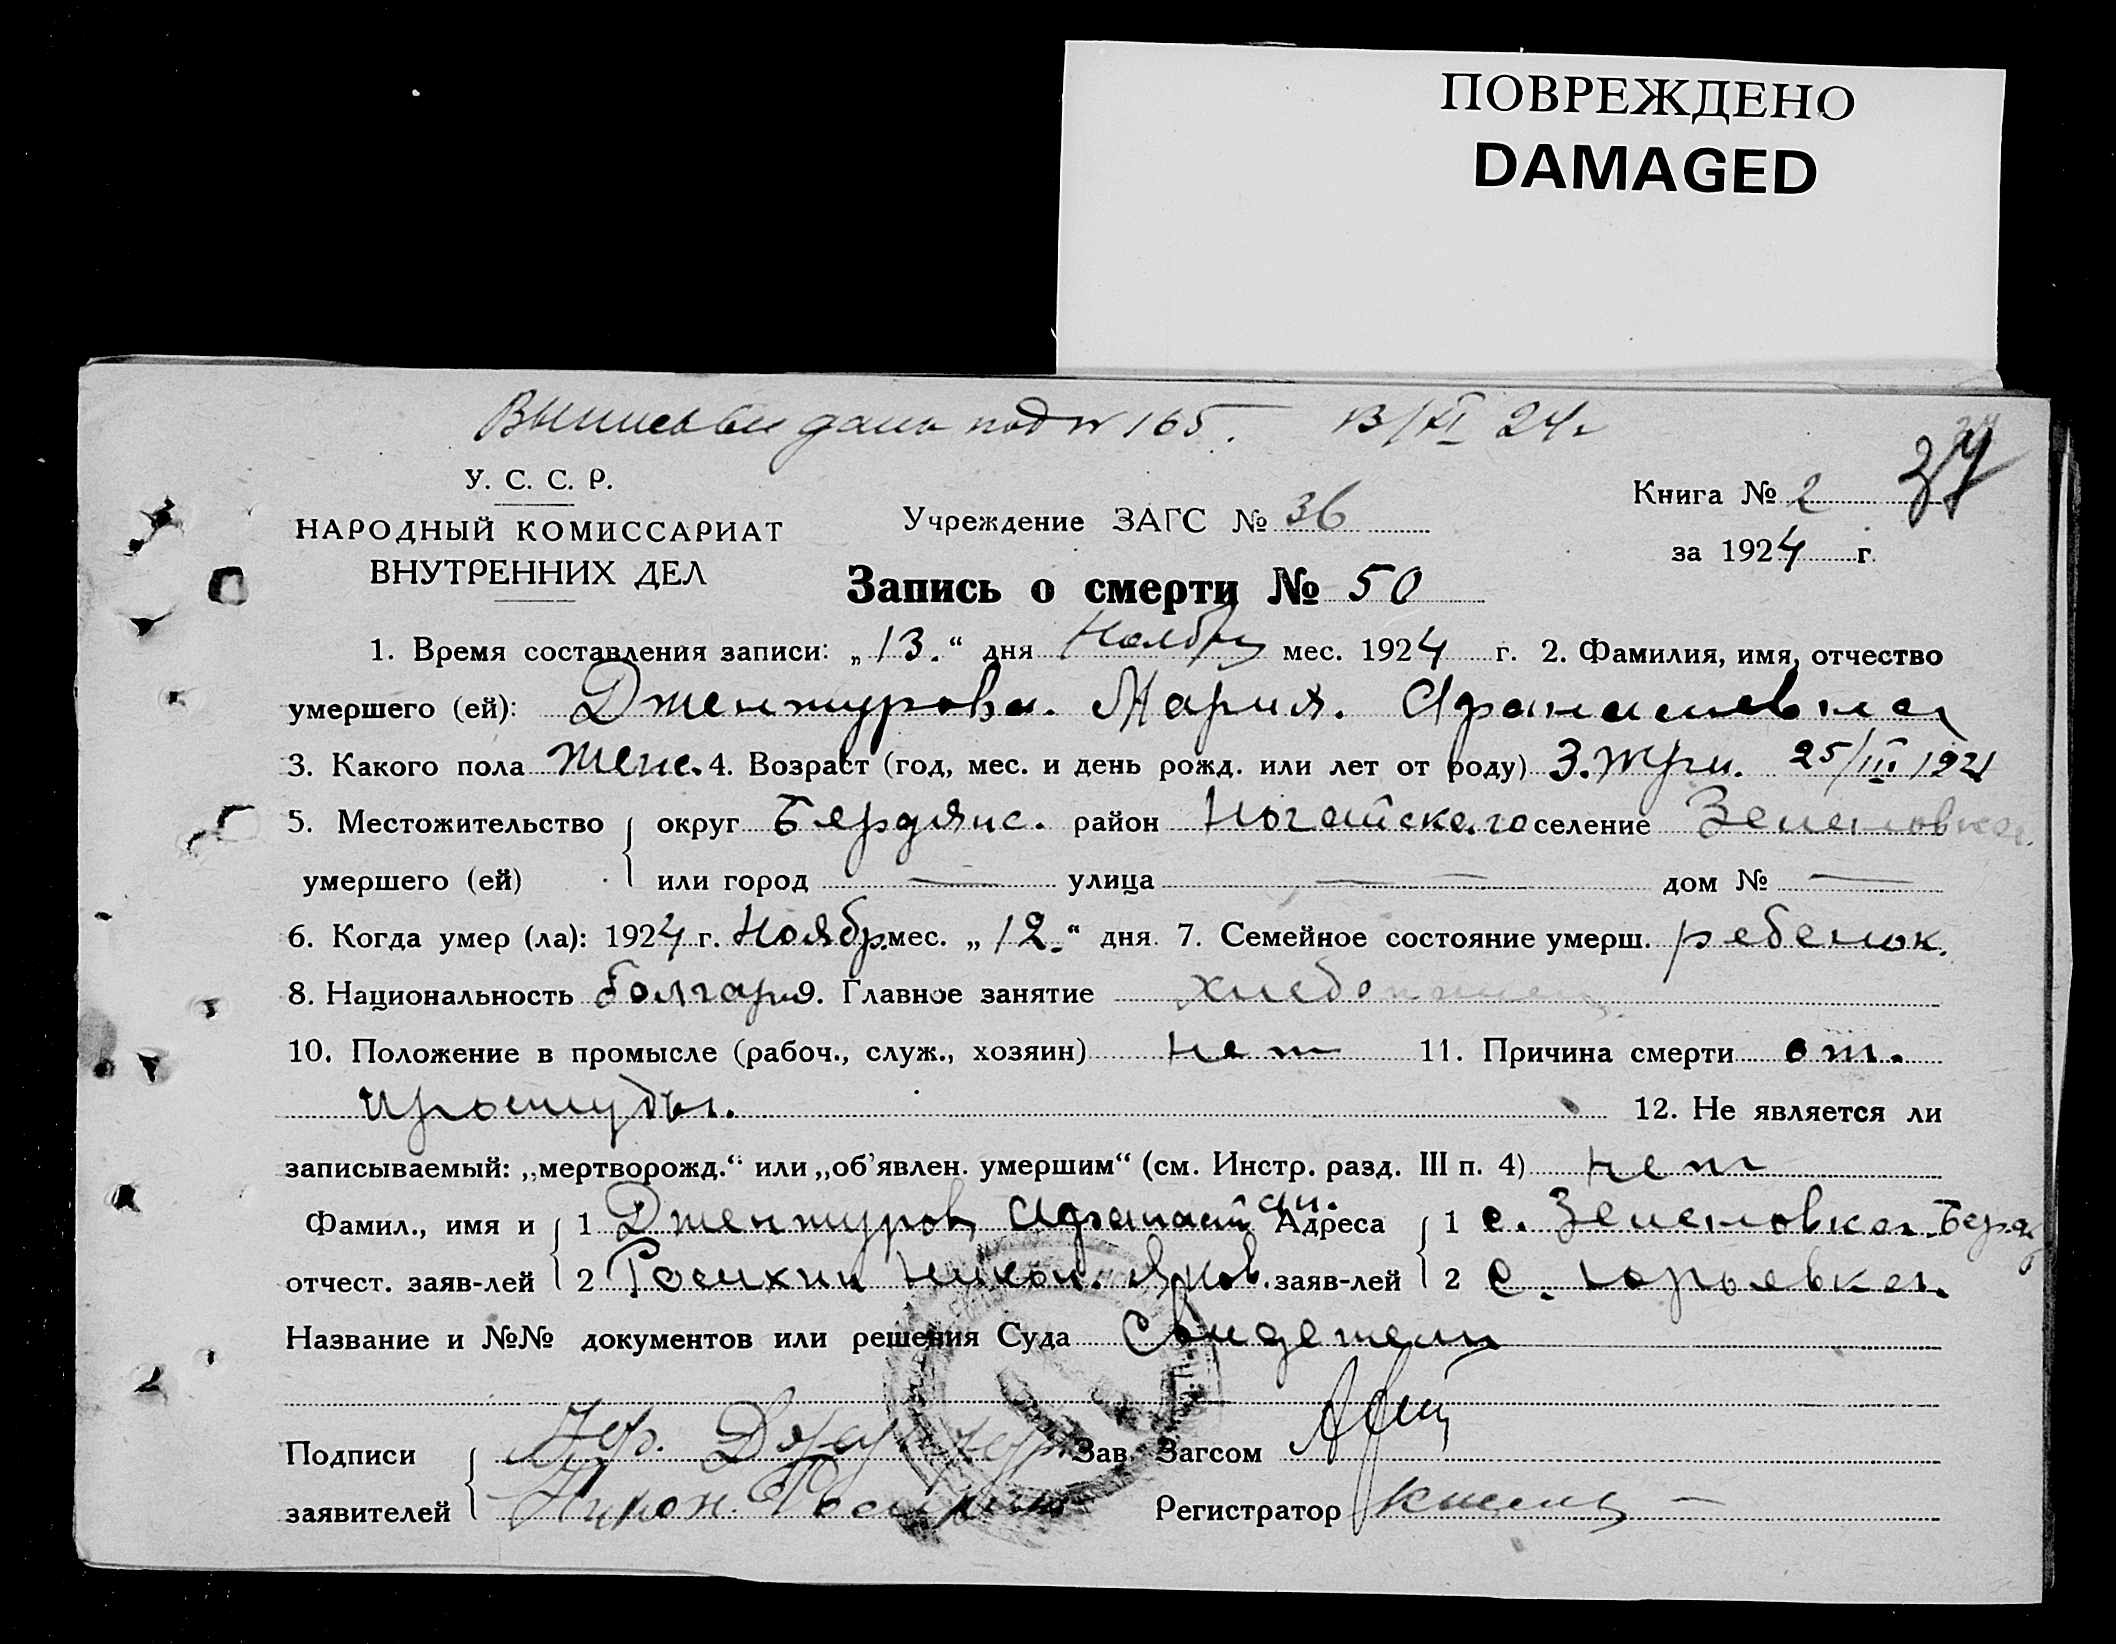 ПОВРЕЖДЕНО
DAMAGED
Выпись дана под № 165. 13/XI 24 г
37
У. С. С. Р.
НАРОДНЫЙ КОМИССАРИАТ
ВНУТРЕННИХ ДЕЛ
Учреждение ЗАГС № 36
Книга № 2
за 1924 г.
Запись о смерти № 50
1. Время составления записи: „13.“ дня Ноября мес. 1924 г. 2. Фамилия, имя, отчество
умершего (ей): Джентурова. Мария. Афанасьевна
3. Какого пола женс. 4. Возраст (год, мес. и день рожд. или лет от роду) 3. три. 25/III 1921
5. Местожительство умершего (ей) округ Бердянс. район Ногайского селение Зеленовка.
или город — улица — — дом № —
6. Когда умер (ла): 1924 г. Ноябр. мес. „12.“ дня. 7. Семейное состояние умерш. ребенок.
8. Национальность болгар. 9. Главное занятие хлебопашец
10. Положение в промысле (рабоч., служ., хозяин) нет 11. Причина смерти от.
простуды. 12. Не является ли
записываемый: „мертворожд.“ или „об'явлен. умершим“ (см. Инстр. разд. III п. 4) нет
Фамил., имя и отчест. заяв-лей 1 Джентуров Афанасий Адреса заяв-лей 1 с. Зеленовка
2 Росихин Никон. Яков. 2 с. Юрьевка.
Название и №№ документов или решения Суда Свидетели
Подписи заявителей Зав. Загсом
Никон Росихин Регистратор